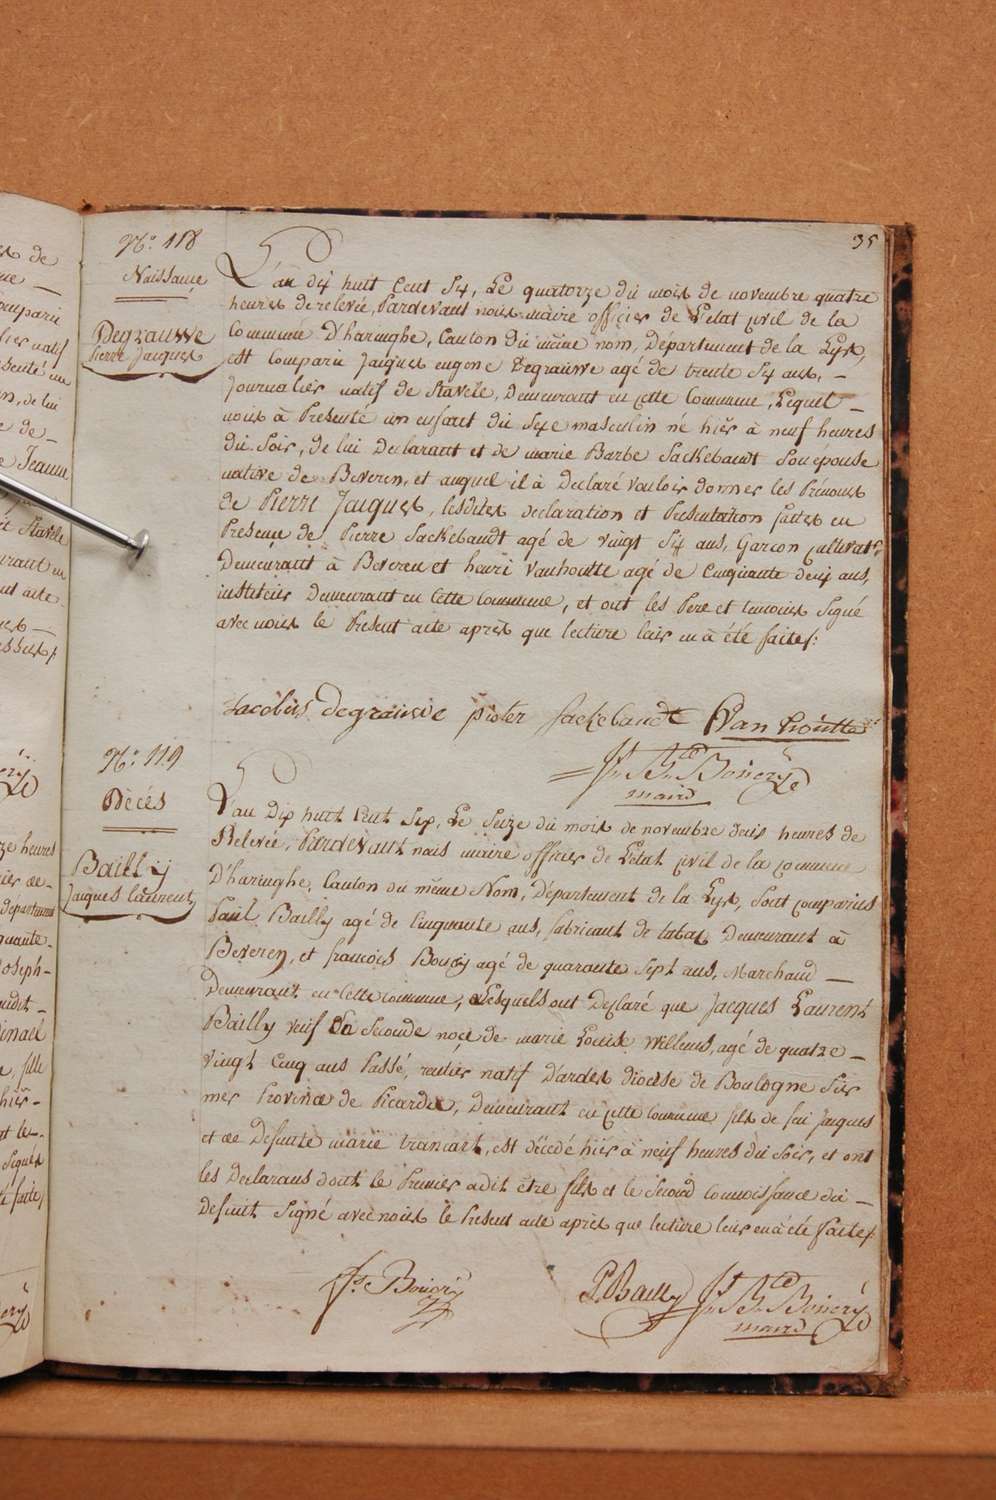 35
N.º 118
Naissance
Degrauwe
Pierre Jacques
L'an dix huit Cent Six, Le quatorze du mois de novembre quatre
heures de relevée, Pardevant nous maire officier de L'etat civil de la
Commune D'haringhe, Canton du même nom, Département de la Lys,
est Comparu Jacques eugene Degrauwe agé de trente six ans, —
Journalier natif de Stavele, Demeurant en cette Commune, Lequel —
nous à Presenté un enfant du Sexe masculin né hièr à neuf heures
du Soir, de lui Declarant et de marie Barbe Sackebandt Son épouse
native de Beveren, et auquel il à Declaré vouloir donner les Prénoms
de Pierre Jacques, lesdites declaration et Presentation faites en
Presence de Pierre Sackebandt agé de vingt Six ans, Garcon cultivatr
Demeurant à Beveren et henri Vanhoutte agé de Cinquante deux ans,
instituteur Demeurant en Cette Commune, et ont les Pere et temoins Signé
avec nous le Present acte après que lecture leur en à été faites:
Jacobus Degrauwe pieter Sackebandt Van houtte
Js. Bte. Bouery
maire
N.º 119
Décés
Bailly
Jaques laurent
L'an Dix huit Cent Six, Le Seize du mois de novembre Trois heures de
Relevée, Pardevant nous maire officier de L'etat civil de la commune
D'haringhe, Canton du même Nom, Département de la Lys, Sont comparus
Paul Bailly agé de Cinquante ans, fabricant de tabac Demeurant à
Beveren, et francois Bouery agé de quarante Sept ans, Marchand —
Demeurant en Cette commune, Lesquels ont Declaré que Jacques Laurent
Bailly veuf de Seconde noce de marie Louise Willems, agé de quatre —
vingt Cinq ans Passé, rentier natif D'ardes Diocése de Boulogne Sur
mer Province de Picardie, Demeurant en cette Commune fils de feu Jaques
et de Defunte marie trancart, est décédé hièr à neuf heures du Soir, et ont
les Declarans dont le Premier a dit être fils et le Second Connoissance du —
Defunt Signé avec nous le Present acte après que lecture leur en à été faites:
fs. Bouery
P. Bailly
Js. Bte. Bouery
maire